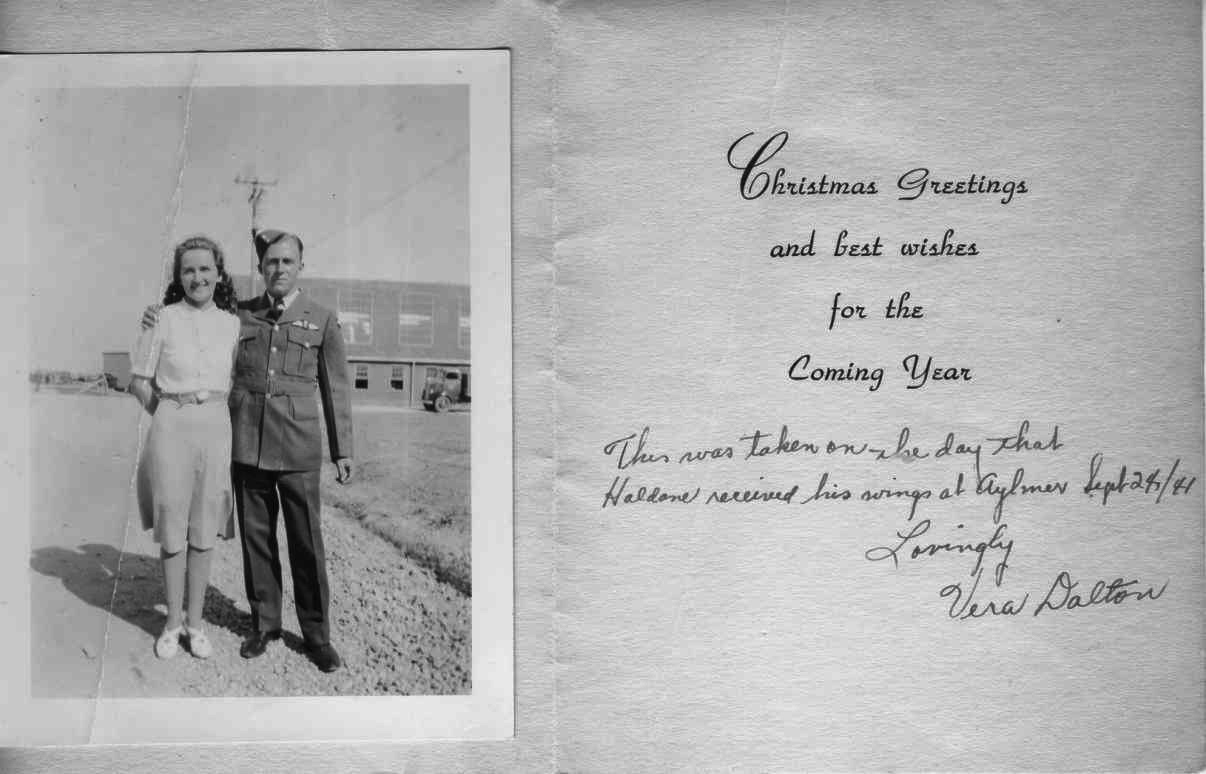 Christmas Greetings
and best wishes
for the
Coming Year
This was taken on the day that
Haldane received his wings at Aylmer Sept 24/41
Lovingly
Vera Dalton